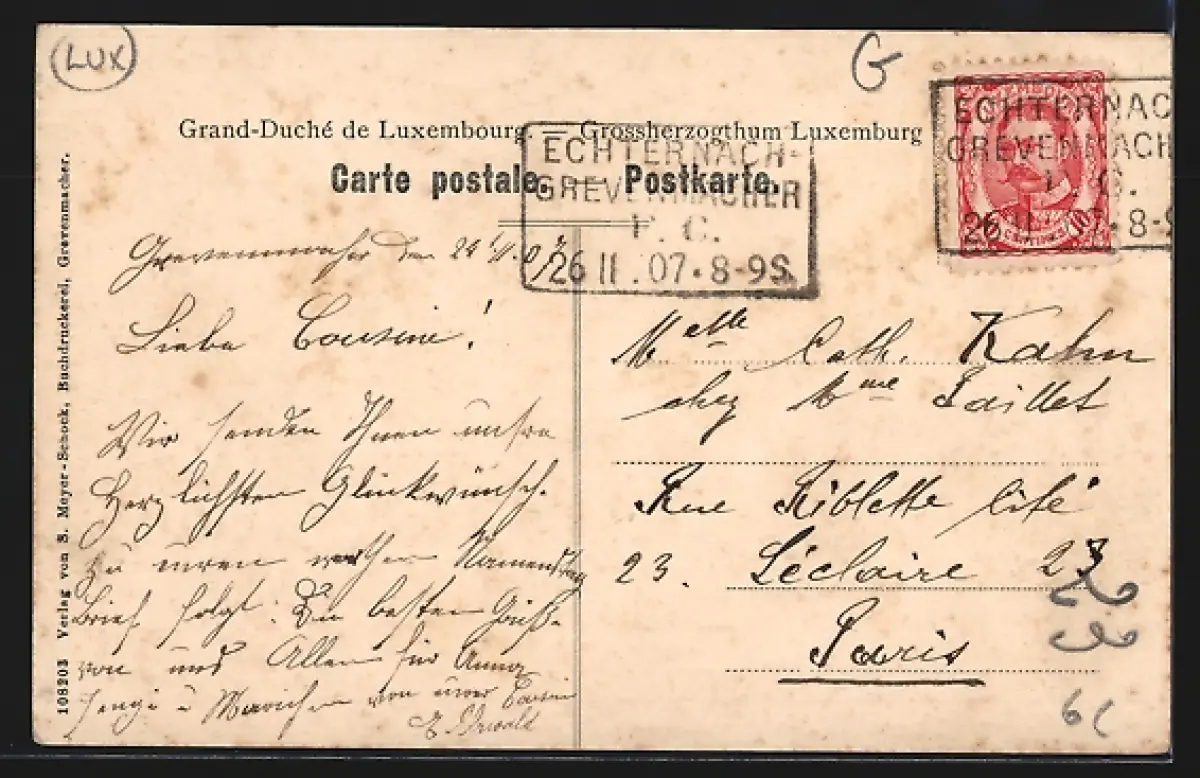 LUX
G
Grand-Duché de Luxembourg. — Grossherzogthum Luxemburg
Carte postale. — Postkarte.
ECHTERNACH-
GREVENMACHER
F. C.
26 II . 07 • 8-9S.
ECHTERNAC
GREVENMACH
F. C.
26 II 07 • 8-9
108203 Verlag von S. Meyer-Schock, Buchdruckerei, Grevenmacher.
Grevenmacher den
Liebe Cousine!
Wir senden Ihnen unsre
Herzlichsten Glückwünsch.
zu Namenstag
Brief folgt. Die besten Grüße
von uns Allen für Anna
von
Melle Cath. Kahn
chez Mme Paillet
Rue Riblette Cité
23. Léclaire 23
Paris